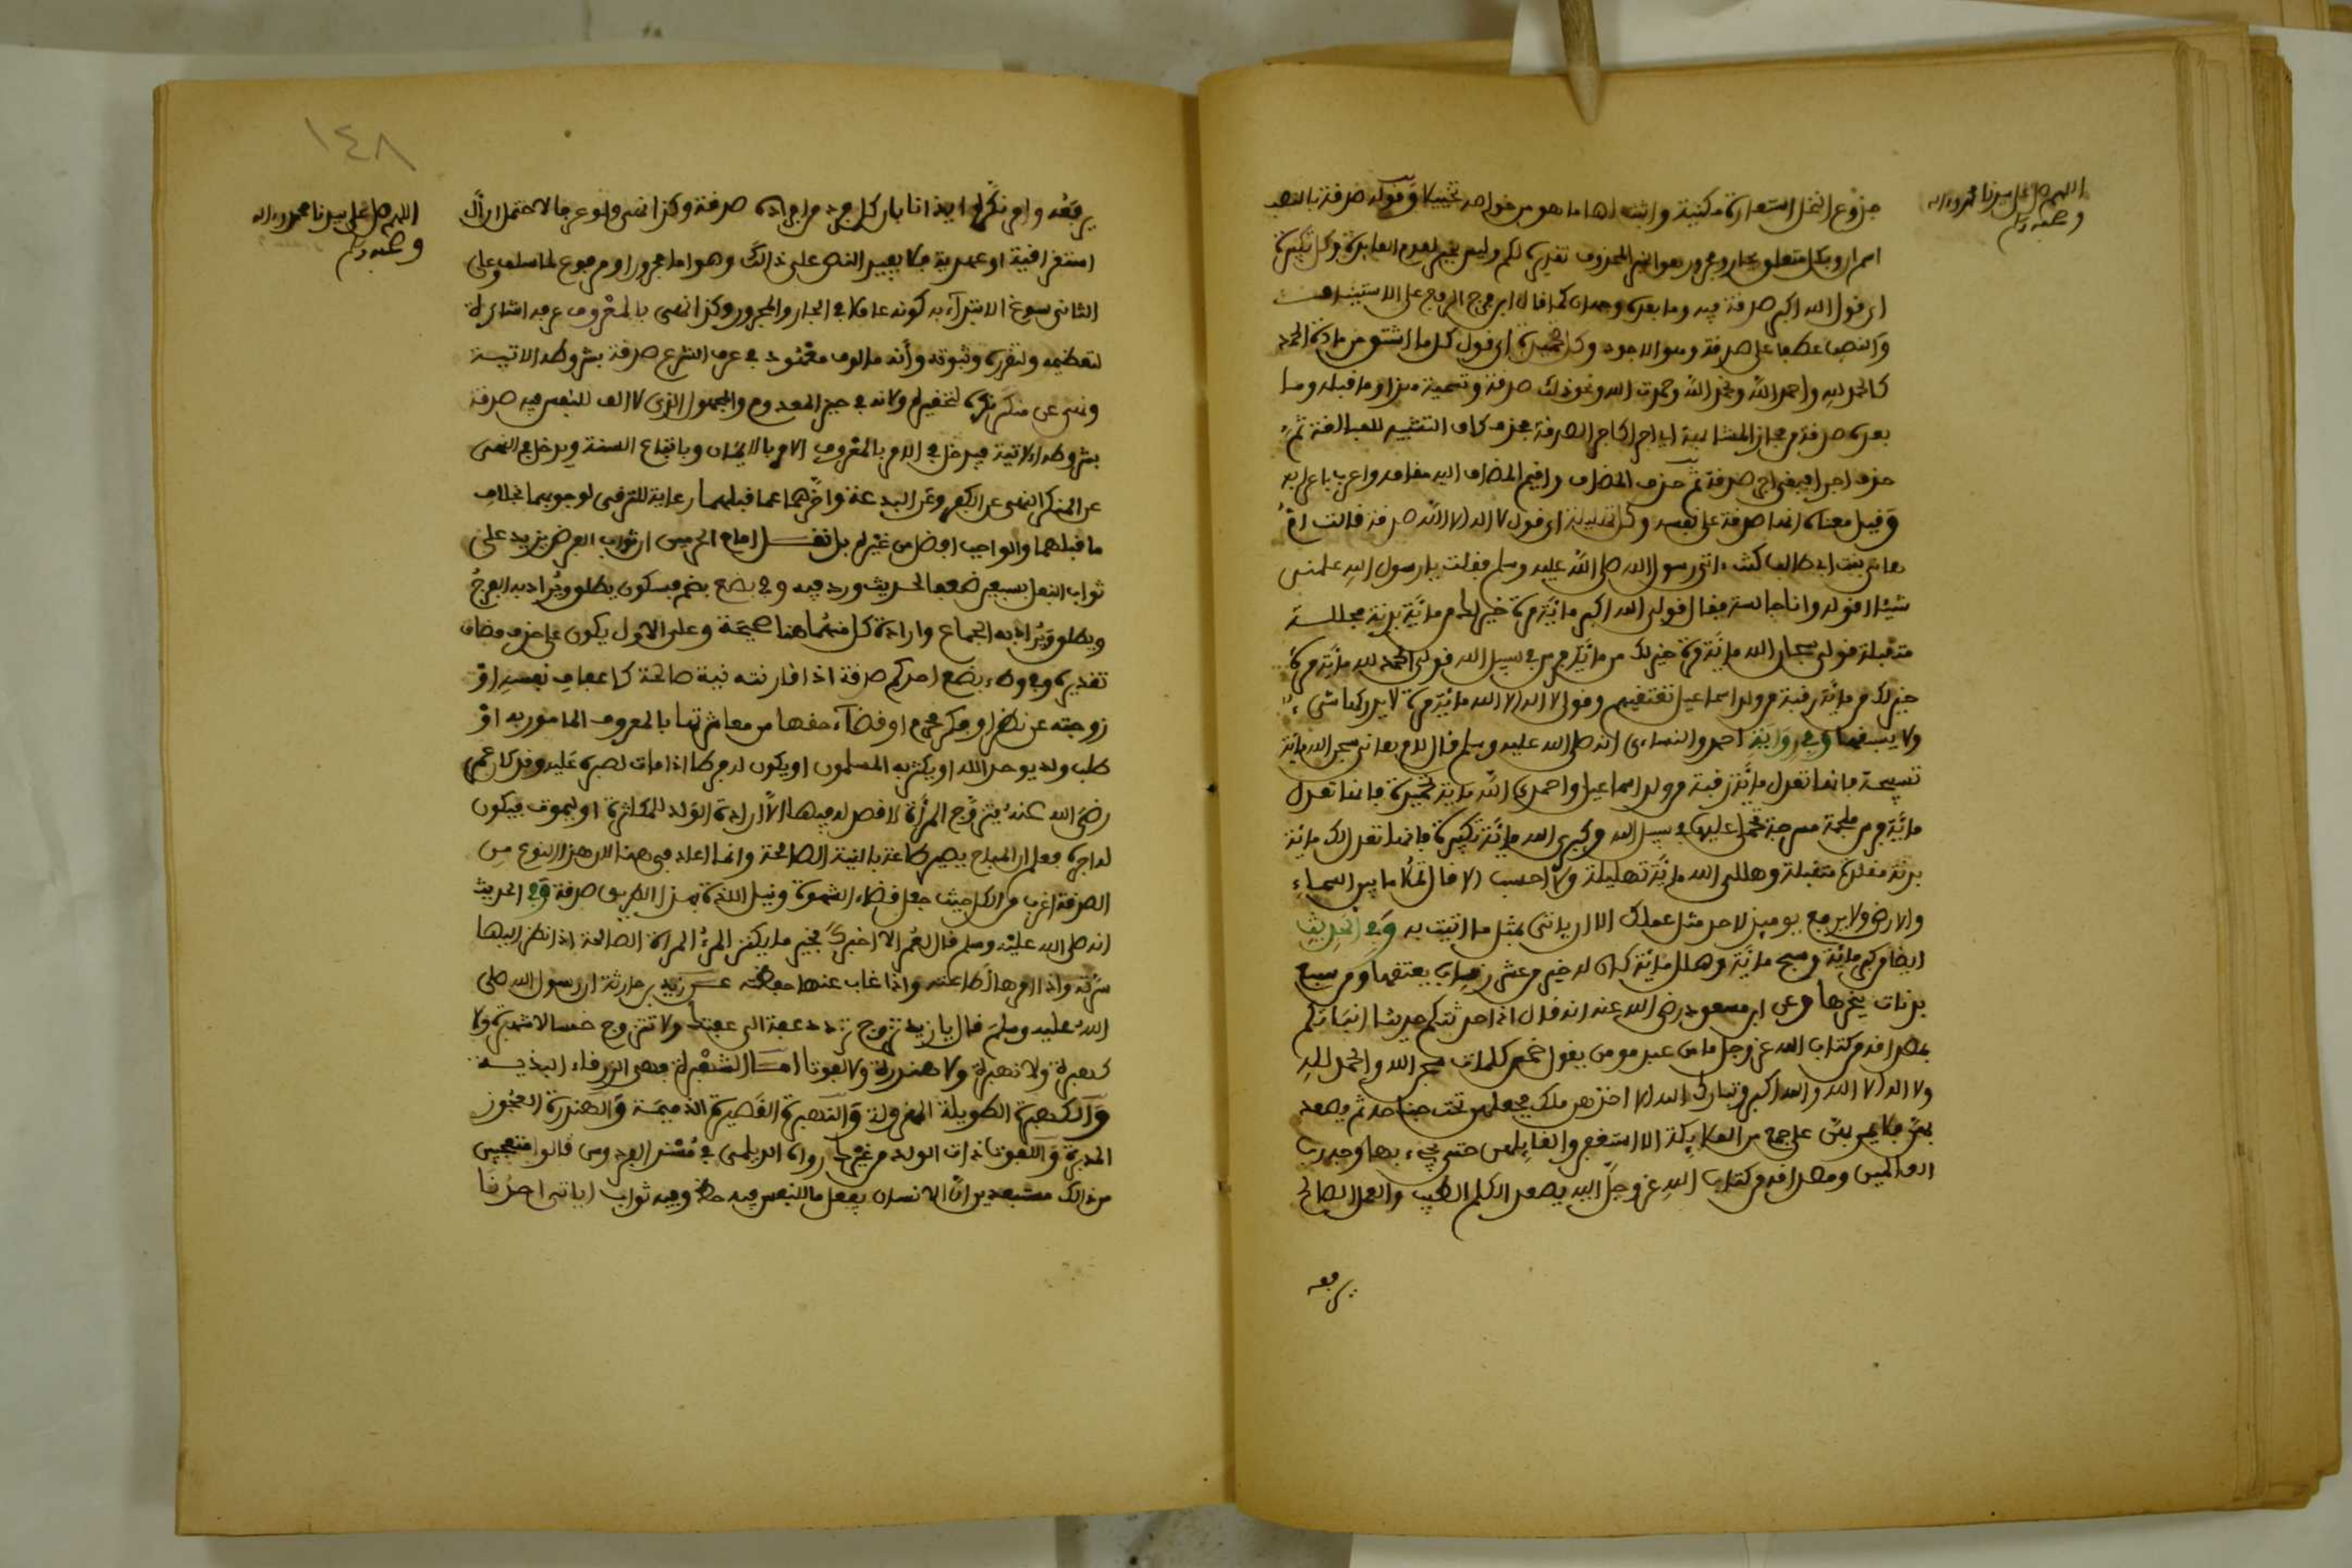 اللهم صل على سيدنا محمد واله
وصحبه وسلم
جذوع النخل استعارة مكنية واثبت لها ما هو من خواصه تخييلا وقوله صدقة بالنصب
اسم ان وبكل متعلق بجار ومجرور هو الخبر المحذوف تقديره لكم وليس بخبر لعدم الفايدة وكل تكبيرة
اي قول الله اكبر صدقة فيه وما بعده وجهان كما قال ابن فرج الرفع على الاستيناف
والنصب عطفا على صدقة وهو الاجود وكل تحميدة اي قول كل ما اشتق من مادة الحمد
كالحمد لله واحمد الله ونحمد الله وحمدت الله ونحو ذلك صدقة وتسمية هذا وما قبله وما
بعده صدقة من مجاز المشابهة اي اجر كاجر الصدقة بحذف كاف التشبيه للمبالغة ثم
حذف اجر فبقي اجر صدقة ثم حذف المضاف واقيم المضاف اليه مقامه واعرب باعرابه
وقيل معناه انها صدقة على نفسه وكل تهليلة اي قول لا اله الا الله صدقة قالت ام
هانئ بنت ابي طالب كنت اتى رسول الله صلى الله عليه وسلم فقلت يا رسول الله علمني
شيئا اقوله وانا جالسة فقال قولي الله اكبر مائة مرة خير لك من مائة بدنة مجللة
متقبلة قولي سبحان الله مائة مرة خير لك من مائة فرس في سبيل الله قولي الحمد لله مائة مرة
خير لك من مائة رقبة من ولد اسماعيل تعتقيهم وقولي لا اله الا الله مائة مرة لا يدركها شيء
ولا يسبقها وفي رواية احمد والنساءي انه صلى الله عليه وسلم قال لام هانئ سبحي الله مائة
تسبيحة فانها تعدل مائة رقبة من ولد اسماعيل واحمدي الله مائة تحميدة فانها تعدل
مائة فرس ملجمة مسرجة تحمل عليها في سبيل الله وكبري الله مائة تكبيرة فانها تعدل لك مائة
بدنة مقلدة متقبلة وهللي الله مائة تهليلة ولا احسب الا قال تملا ما بين السماء
والارض ولا يرفع يوميذ لاحد مثل عملك الا ان ياتي بمثل ما اتيت به وفي الحديث
ايضا من كبر مائة وسبح مائة وهلل مائة كان له خير من عشر رقاب يعتقها ومن سبع
بدنات ينحرها وعن ابن مسعود رضي الله عنه انه قال اذا حدثتكم حديثا انباتكم
بمصداقه من كتاب الله عز وجل ما من عبد مومن يقول خمس كلمات سبحن الله والحمد لله
ولا اله الا الله والله اكبر وتبارك الله الا اخذهن ملك فجعلهن تحت جناحه ثم يصعد
بهن فلا يمر بهن على جمع من الملايكة الا استغفروا لقايلهن حتى يجيء بها وجه رب
العالمين ومصداقه من كتاب الله عز وجل اليه يصعد الكلم الطيب والعمل الصالح
يرفعه
١٤٨
اللهم صل على سيدنا محمد واله
وصحبه وسلم
يرفعه وامر نكره ايذانا بان كل فرد من افراده صدقة وكذا نهي ولو عرفا لاحتمل ان ال
استغراقية او عهدية فلا يفيد النص على ذالك وهو اما مجرور او مرفوع لما سلف وعلى
الثاني سوغ الابتداء به كونه عاملا في الجار والمجرور وكذا نهي بالمعروف عرفه اشارة
لتعظيمه ولتقرره وثبوته وأنه مالوف معهود في عرف الشرع صدقة بشروطه الاتية
ونهي عن منكر نكره لتحقيره ولانه في حيز المعدوم والمجهول الذي لا الف للنفس فيه صدقة
بشروطه الاتية فيدخل في الامر بالمعروف الامر بالايمان وباتباع السنة ويدخل في النهي
عن المنكر النهي عن الكفر وعن البدعة واخرهما عما قبلهما رعاية للترقي لوجوبهما بخلاف
ما قبلهما والواجب افضل من غيره بل نقل امام الحرمين ان ثواب الفرض يزيد على
ثواب النفل بسبعين ضعفا لحديث ورد فيه وفي بضع بضم فسكون يطلق ويراد به الفرج
ويطلق ويراد به الجماع وارادة كل منهما هنا صحيحة وعلى الاول يكون على حذف مضاف
تقديره وفي وطء بضع احدكم صدقة اذا قارنته نية صالحة كاعفاف نفسه او
زوجته عن نظر او فكر محرم او قضاء حقها من معاشرتها بالمعروف المامور به او
طلب ولد يوحد الله او يكثر به المسلمون او يكون له فرطا اذا مات لصبره عليه وقد كان عمر
رضي الله عنه يتزوج المرأة لا قصد له فيها الا ارادة الولد للمكاثرة او ليموت فيكون
له اجره فعلم ان المباح يصير طاعة بالنية الصالحة وانما اعاد في هنا لان هذا النوع من
الصدقة اغرب من الكل حيث جعل قضاء الشهوة ونيل اللذة بهذا الطريق صدقة وفي الحديث
انه صلى الله عليه وسلم قال لعمر الا اخبرك بخير ما يكنز المرء المراة الصالحة اذا نظر اليها
سرته واذا امرها اطاعته واذا غاب عنها حفظته عن زيد بن حارثة ان رسول الله صلى
الله عليه وسلم قال يا زيد تزوج تزدد عفة الى عفتك ولا تتزوج خمسا لا شهبرة ولا
لهبرة ولا نهبرة ولا هندرة ولا لفوتا اما الشهبرة فهي الزرقاء البذية
واللهبرة الطويلة المهزولة والنهبرة القصيرة الذميمة والهندرة العجوز
المدبرة واللفوتا ذات الولد من غيرك رواه الديلمي في مسند الفردوس قالوا متعجبين
من ذالك مستبعدين ان الانسان يفعل ما للنفس فيه حظ وفيه ثواب اياتي احدنا